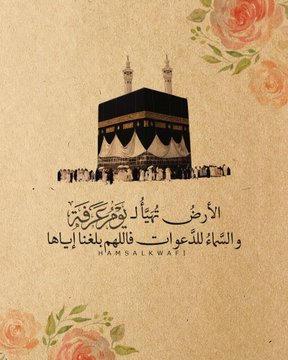 الأرضُ تُهَيَّأُ لـ يَوْمِ عَرَفَة
والسَّماءُ للدَّعوات فاللهم بلغنا إياها
HAMSALKWAFI